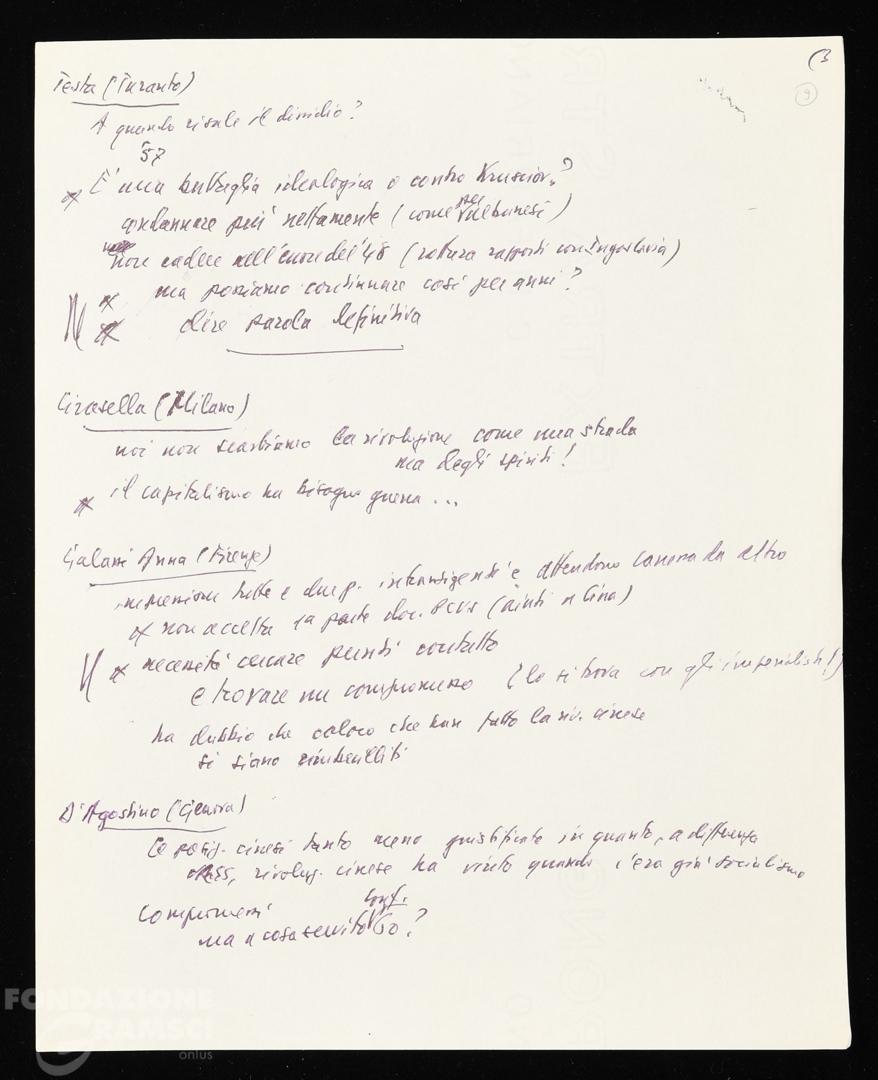 (3
9
Testa (Taranto)
A quando risale il dissidio?
'57
È una battaglia ideologica o contro Krusciov?
condannare più nettamente (come per albanesi)
non cadere nell'errore del '48 (rottura rapporti con Jugoslavia)
ma possiamo continuare così per anni?
dire parola definitiva
Cirasella (Milano)
noi non scambiamo la rivoluzione come una strada
ma degli spiriti!
il capitalismo ha bisogno guerra ...
Galani Anna (Firenze)
tutte e due p. intransigenti e attendono l'una da altro
non accetta 1a parte doc. PCUS (aiuti a Cina)
necessità cercare punti contatto
e trovare un compromesso (lo si trova con gli imperialisti!)
ha dubbio che coloro che han fatto la riv. cinese
si siano rimbecilliti
D'Agostino (Genova)
Le posiz. cinesi tanto meno giustificate in quanto, a differenza
URSS, rivoluz. cinese ha vinto quando c'era già socialismo
Compromessi
conf.
ma a cosa servita 60?
FONDAZIONE
GRAMSCI
onlus